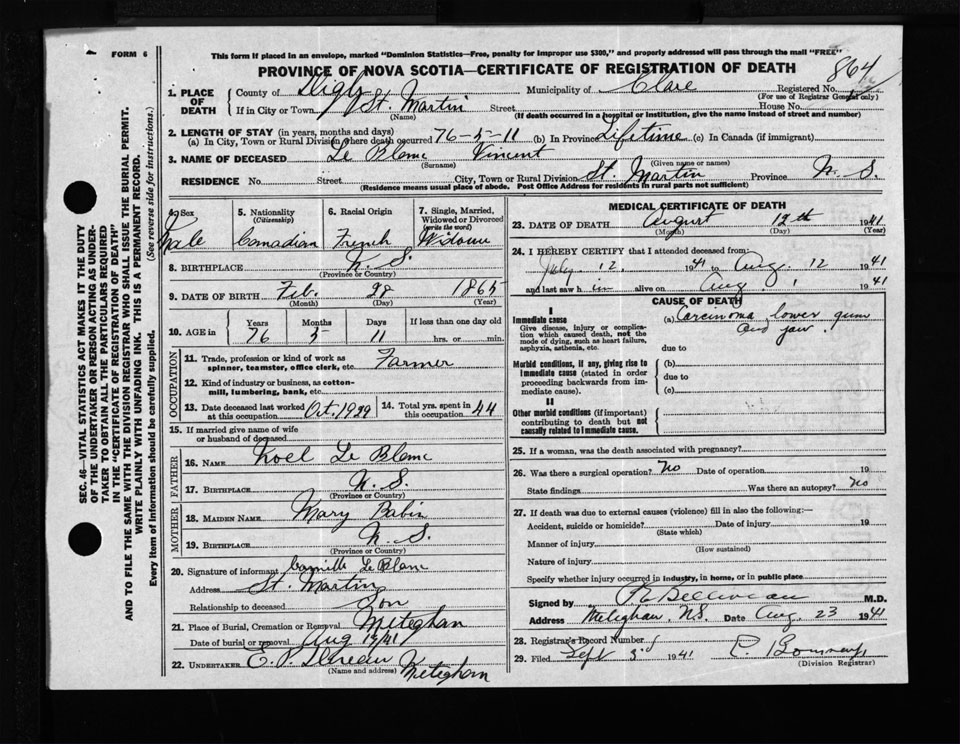 FORM 6
This form if placed in an envelope, marked "Dominion Statistics—Free, penalty for improper use $300," and properly addressed will pass through the mail "FREE"
PROVINCE OF NOVA SCOTIA—CERTIFICATE OF REGISTRATION OF DEATH
864
1. PLACE OF DEATH
County of Digby Municipality of Clare Registered No.
(For use of Registrar General only)
If in City or Town St. Martin Street House No.
(Name) (If death occurred in a hospital or institution, give the name instead of street and number)
2. LENGTH OF STAY (in years, months and days)
(a) In City, Town or Rural Division where death occurred 76-5-11 (b) In Province Lifetime (c) In Canada (if immigrant)
3. NAME OF DECEASED Le Blanc Vincent
(Surname) (Given name or names)
RESIDENCE No. Street City, Town or Rural Division St. Martin Province N. S.
(Residence means usual place of abode. Post Office Address for residents in rural parts not sufficient)
4. Sex Male
5. Nationality (Citizenship) Canadian
6. Racial Origin French
7. Single, Married, Widowed or Divorced (write the word)
8. BIRTHPLACE N. S.
(Province or Country)
9. DATE OF BIRTH Feb. 28 1865
(Month) (Day) (Year)
10. AGE in Years Months Days If less than one day old
76 5 11 hrs. or min.
OCCUPATION
11. Trade, profession or kind of work as spinner, teamster, office clerk, etc. Farmer
12. Kind of industry or business, as cotton-mill, lumbering, bank, etc.
13. Date deceased last worked at this occupation Oct. 1939
14. Total yrs. spent in this occupation 44
15. If married give name of wife or husband of deceased
FATHER
16. NAME Noel Le Blanc
17. BIRTHPLACE N. S.
(Province or Country)
MOTHER
18. MAIDEN NAME Mary Babin
19. BIRTHPLACE N. S.
(Province or Country)
20. Signature of informant Camille Le Blanc
Address St. Martin
Relationship to deceased Son
21. Place of Burial, Cremation or Removal Meteghan
Date of burial or removal Aug
22. UNDERTAKER Meteghan
(Name and address)
MEDICAL CERTIFICATE OF DEATH
23. DATE OF DEATH August 12th 1941
(Month) (Day) (Year)
24. I HEREBY CERTIFY that I attended deceased from:
July 12, 1941 to Aug. 12 1941
and last saw him alive on Aug. 1 1941
CAUSE OF DEATH
I
Immediate cause (a) Carcinoma lower gum and jaw.
Give disease, injury or complication which caused death, not the mode of dying, such as heart failure, asphyxia, asthenia, etc.
due to
Morbid conditions, if any, giving rise to immediate cause (stated in order proceeding backwards from immediate cause).
(b)
due to
(c)
II
Other morbid conditions (if important) contributing to death but not causally related to immediate cause.
25. If a woman, was the death associated with pregnancy?
26. Was there a surgical operation? No Date of operation 19
State findings Was there an autopsy? No
27. If death was due to external causes (violence) fill in also the following:—
Accident, suicide or homicide? Date of injury 19
(State which)
Manner of injury
(How sustained)
Nature of injury
Specify whether injury occurred in industry, in home, or in public place
Signed by Belliveau M.D.
Address Meteghan, N.S. Date Aug. 23 1941
28. Registrar's Record Number
29. Filed Sept 3 1941
(Division Registrar)
SEC. 46—VITAL STATISTICS ACT MAKES IT THE DUTY
OF THE UNDERTAKER OR PERSON ACTING AS UNDERTAKER
TO OBTAIN ALL THE PARTICULARS REQUIRED
IN THE "CERTIFICATE OF REGISTRATION OF DEATH"
AND TO FILE THE SAME WITH THE DIVISION REGISTRAR WHO SHALL ISSUE THE BURIAL PERMIT.
WRITE PLAINLY WITH UNFADING INK. THIS IS A PERMANENT RECORD.
Every item of information should be carefully supplied. (See reverse side for instructions.)